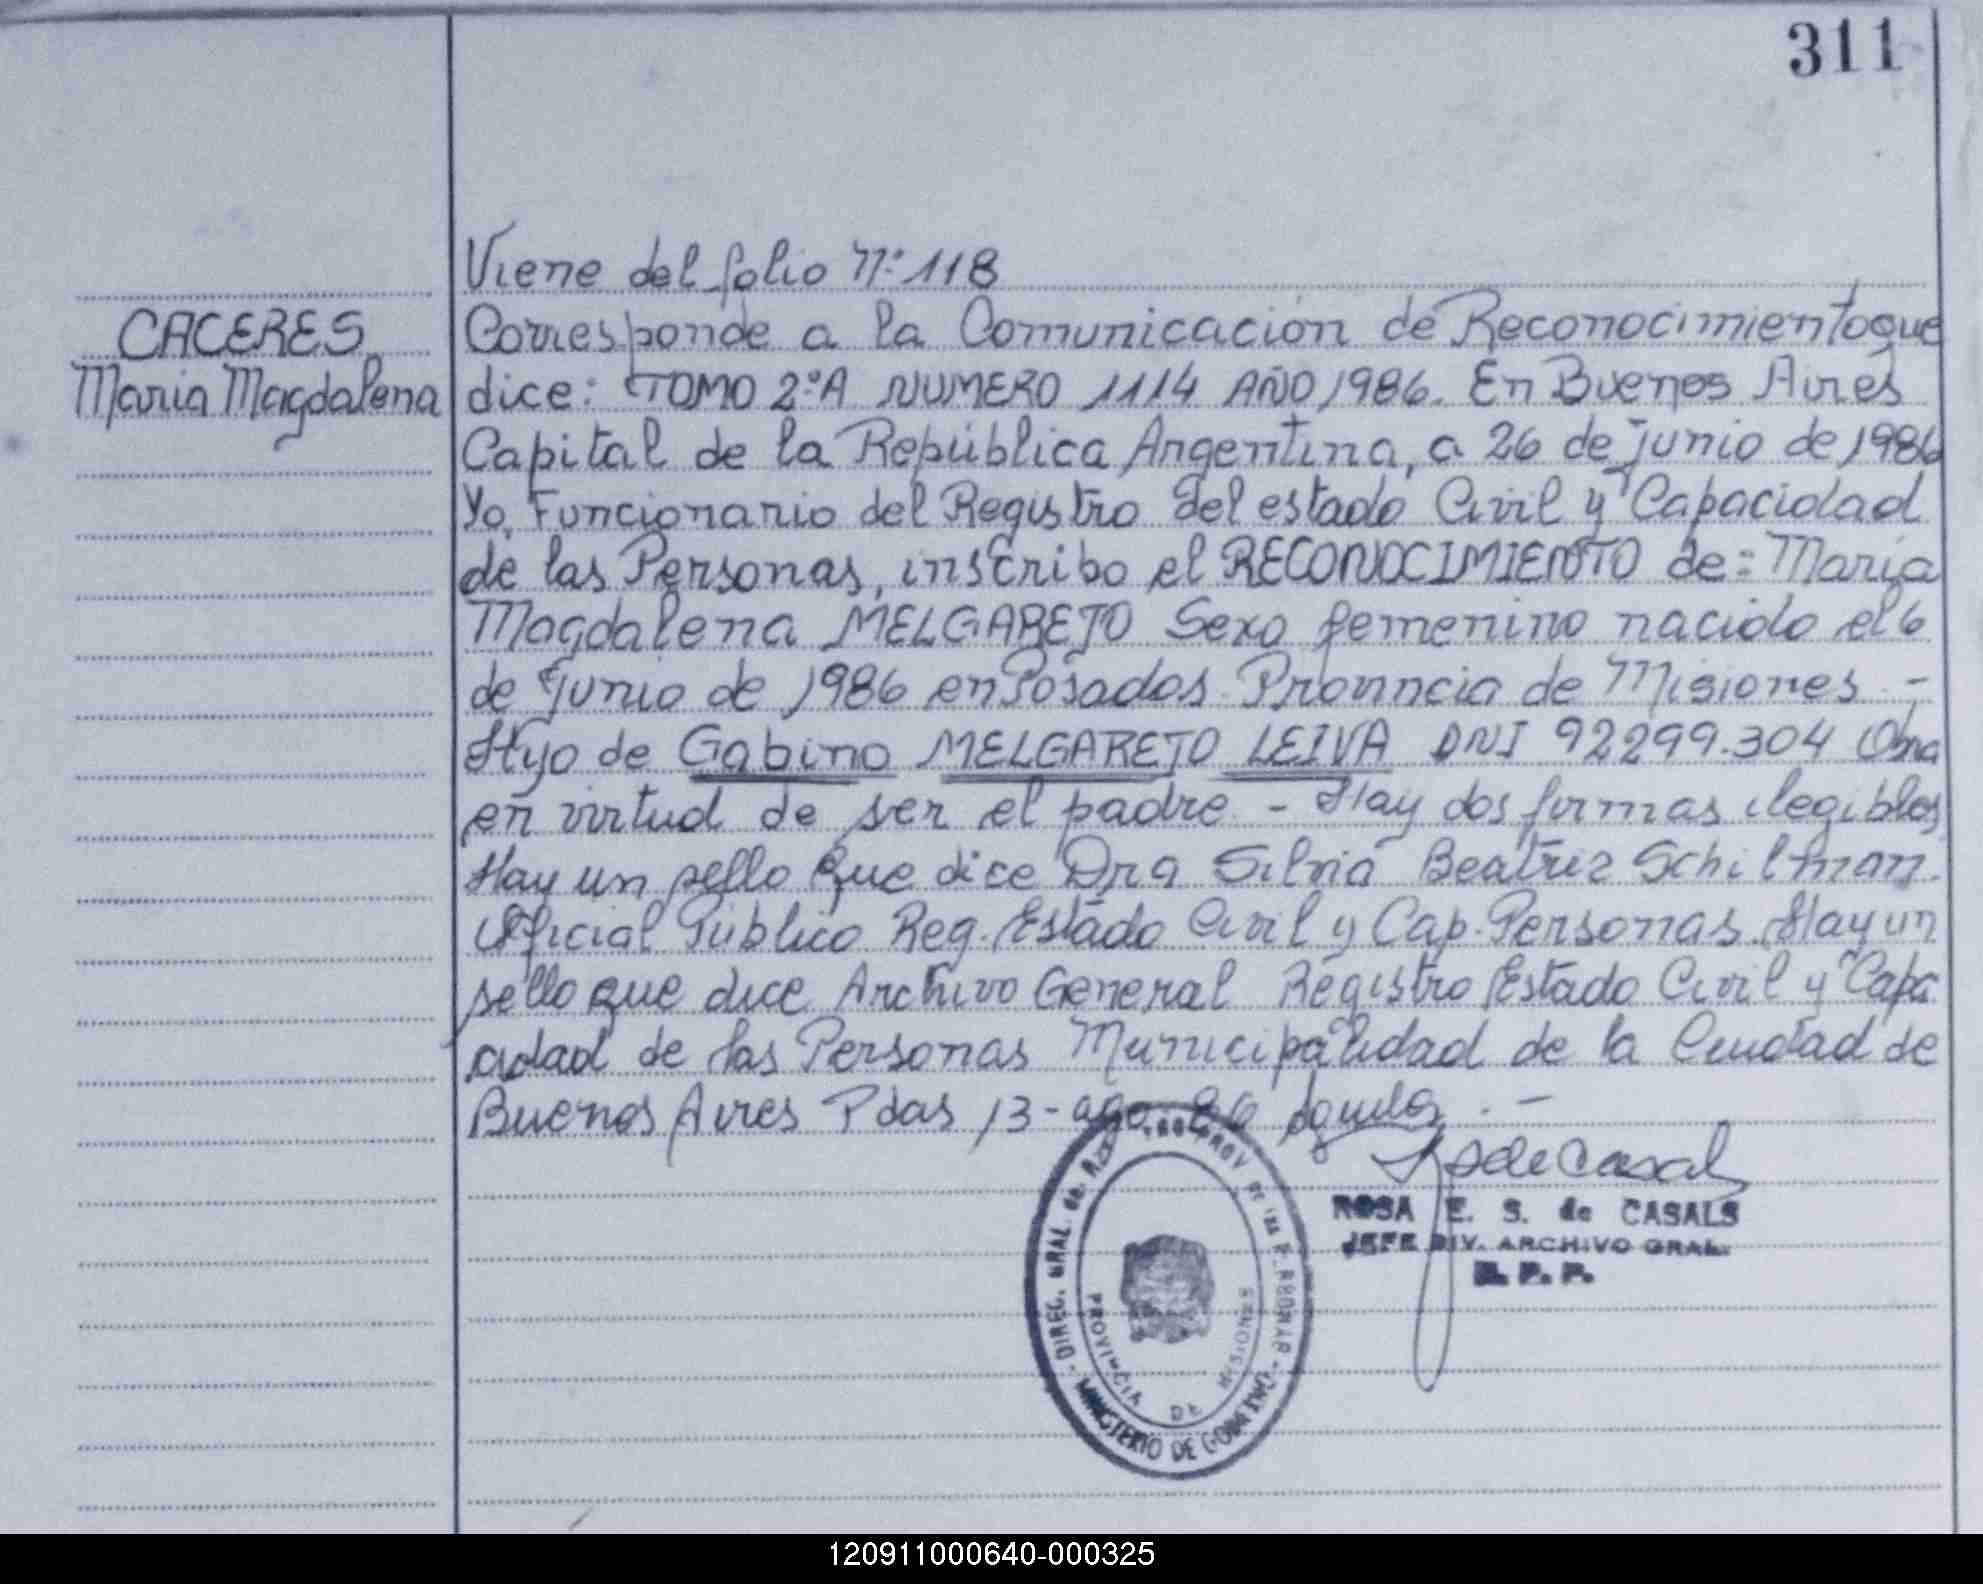 311
CACERES
Maria Magdalena
Viene del folio Nº 118
Corresponde a la Comunicación de Reconocimiento que
dice: TOMO 2º A NUMERO 1114 AÑO 1986. En Buenos Aires
Capital de la República Argentina, a 26 de junio de 1986
Yo, Funcionario del Registro del estado Civil y Capacidad
de las Personas, inscribo el RECONOCIMIENTO de: María
Magdalena MELGAREJO Sexo femenino nacido el 6
de Junio de 1986 en Posadas. Provincia de Misiones. -
Hijo de Gabino MELGAREJO LEIVA DNI 92299.304 Obra
en virtud de ser el padre. - Hay dos firmas ilegibles
Hay un sello que dice Dra Silvia Beatriz Schiltman.
Oficial Público Reg. Estado Civil y Cap. Personas. Hay un
sello que dice Archivo General Registro Estado Civil y Capa
cidad de las Personas Municipalidad de la Ciudad de
Buenos Aires Pdas 13-ago. 86 . -
ROSA E. S. de CASALS
JEFE DIV. ARCHIVO GRAL.
R. P. P.
DIREC. GRAL. de PROV. DE las PERSONAS
PROVINCIA DE MISIONES
MINISTERIO DE GOBIERNO
120911000640-000325